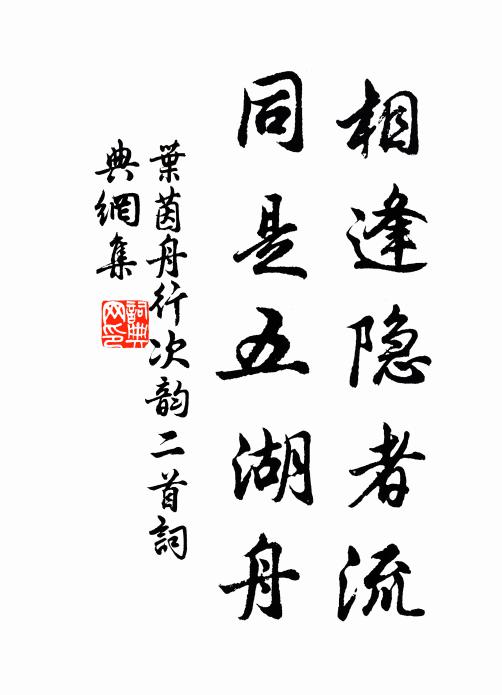 相逢隐者流
同是五湖舟
葉茵舟行次韵二首詞
典網集
詞典网印